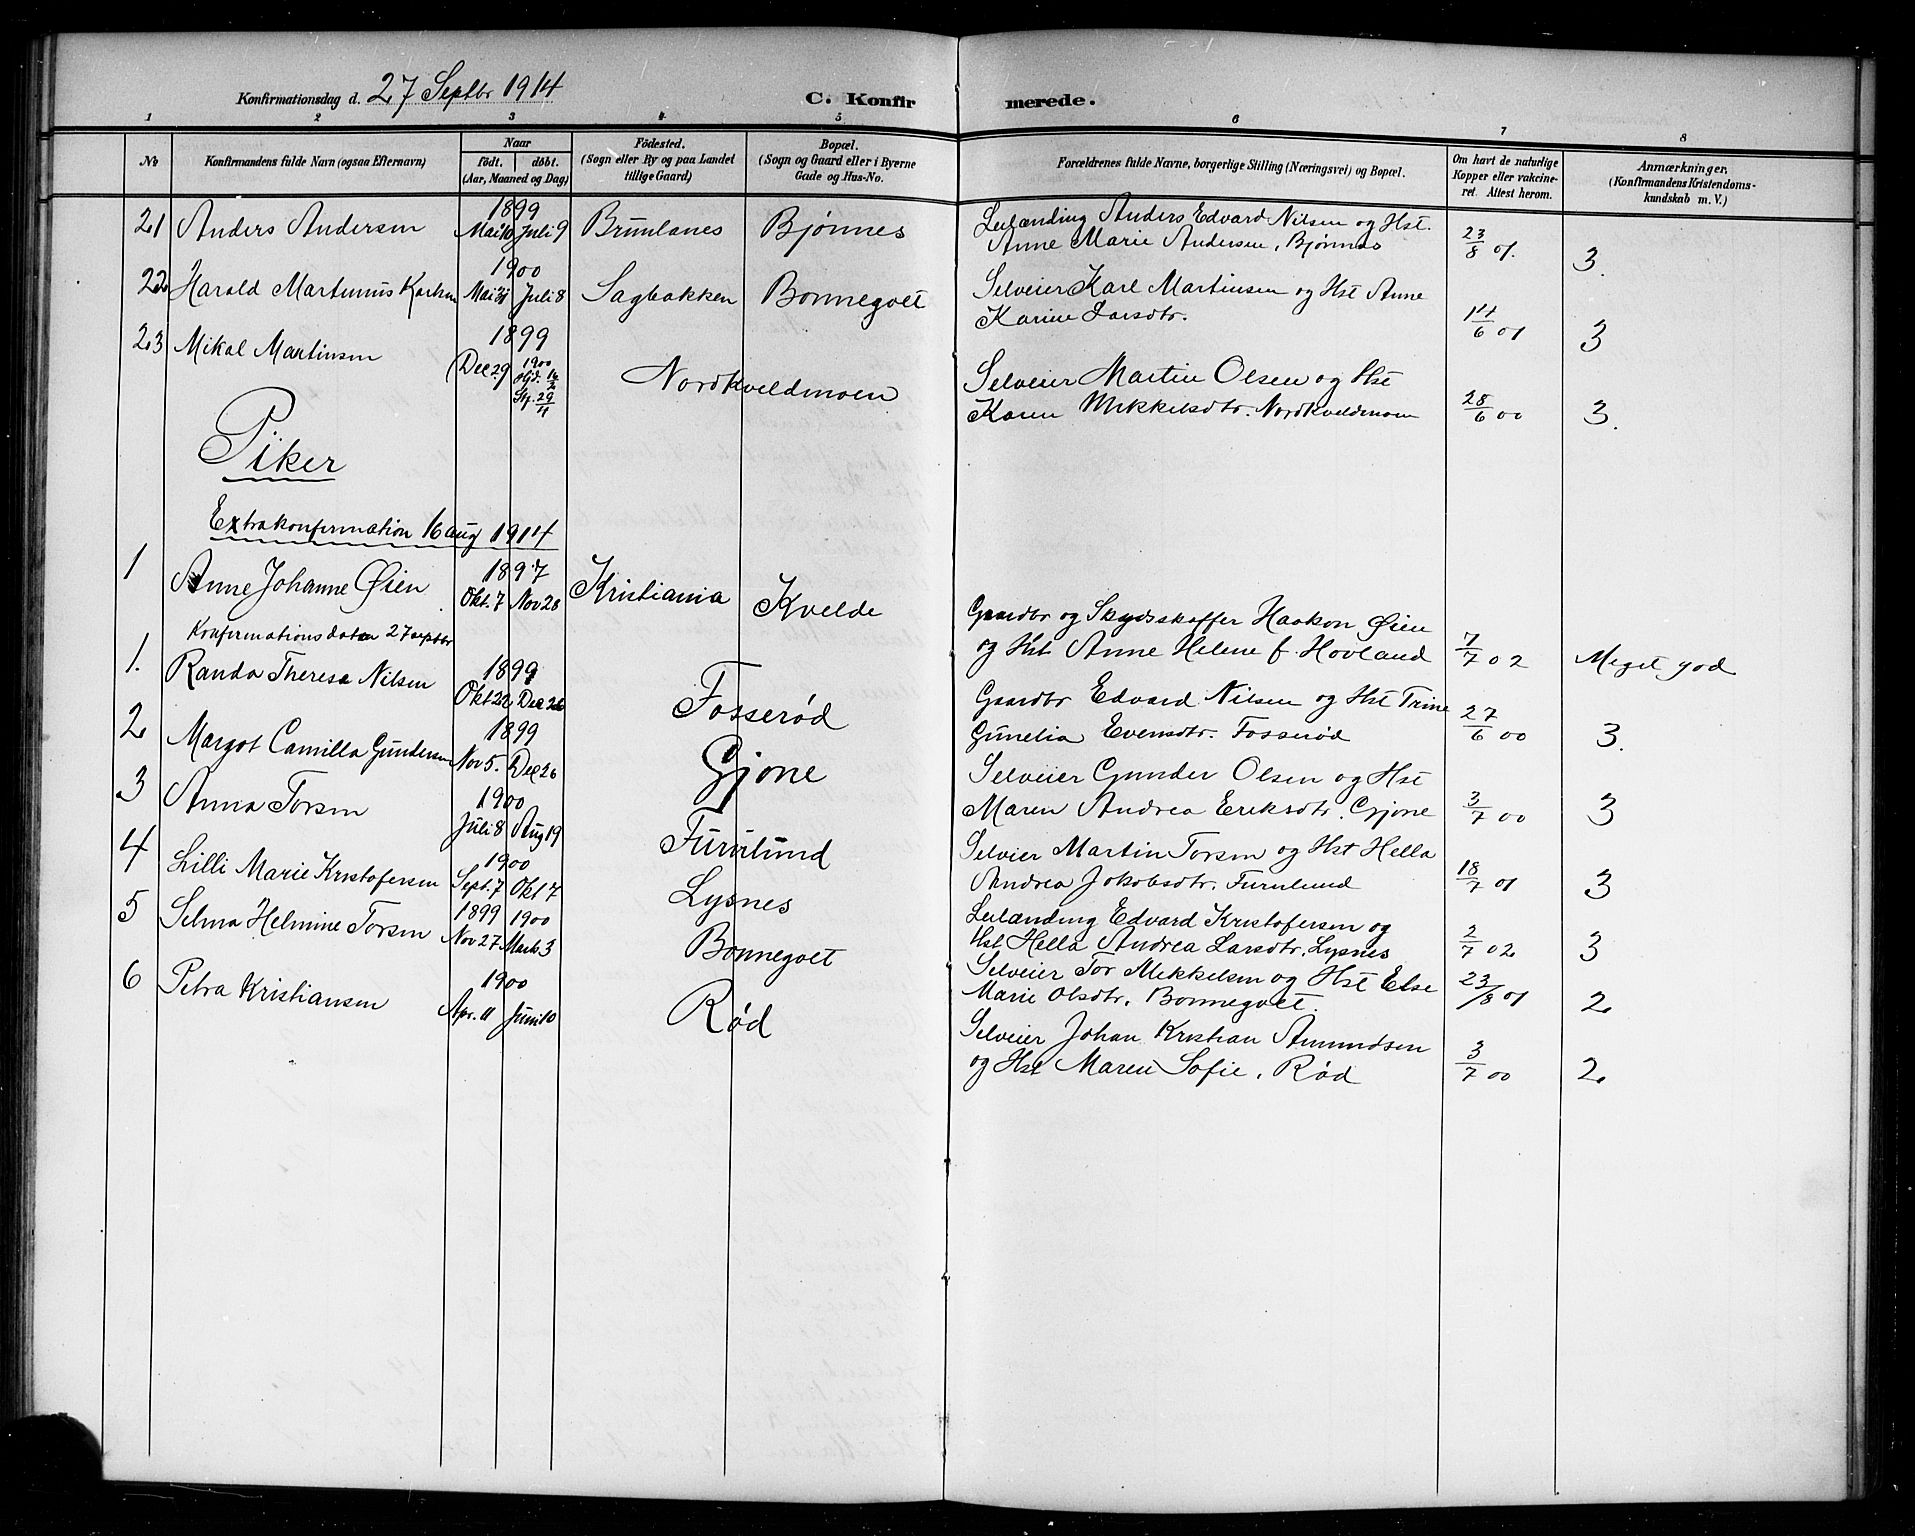 Konfirmationsdag d. 27 Septbr 1914
C. Konfirmerede.
1 2 3 4 5 6 7 8
No
Konfirmandens fulde Navn (ogsaa Efternavn)
Naar
födt. döbt.
(Aar, Maaned og Dag)
Födested.
(Sogn eller By og paa Landet
tillige Gaard)
Bopæl.
(Sogn og Gaard eller i Byerne
Gade og Hus-No.
Forældrenes fulde Navne, borgerlige Stilling (Næringsvei) og Bopæl.
Om havt de naturlige
Kopper eller vakcine-
ret. Attest herom.
Anmærkninger.
(Konfirmandens Kristendoms-
kundskab m. V.)
21 Anders Andersen 1899 Mai 10 Juli 9 Brunlanes Bjønnes
Leilænding Anders Edvard Nilsen og Hst.
Anne Marie Andersen, Bjønnes 23/8 01. 3.
22 Harald Martinius Karlsen 1900 Mai 31 Juli 8 Sagbakken Bonnegolt
Selveier Karl Martinsen og Hst Anne
Karine Larsdtr. 14/6 01 3
23 Mikal Martinsen 1899 Dec 29 1900 Hjd. 16/2 St. 29/4 Nordkveldmoen
Selveier Martin Olsen og Hst
Karen Mikkelsdtr. Nordkveldmoen 28/6 00 3.
Piker
Extrakonfirmation 16 aug 1914
1 Anne Johanne Øien 1897 Okt. 7 Nov 28 Kristiania Kvelde
Gaardbr og Skydsskaffer Haakon Øien
og Hst Anne Helene f. Hovland 7/7 02 Meget god
Konfirmationsdaten 27 septbr
1. Randa Therese Nilsen 1899 Okt 22 Dec 26 Fosserød
Gaardbr Edvard Nilsen og Hst Trine
Gunelia Evensdtr. Fosserød 27/6 00 3.
2 Margot Camilla Gundersen 1899 Nov 5. Dec 26 Gjone
Selveier Gunder Olsen og Hst
Maren Andrea Eriksdtr. Gjone 3/7 00 3
3 Anna Torsen 1900 Juli 8 Aug 19 Furulund
Selveier Martin Torsen og Hst Hella
Andrea Jakobsdtr. Furulund 18/7 01 3
4 Lilli Marie Kristofersen 1900 Sept. 7 Okt 7 Lysnes
Leilænding Edvard Kristofersen og
Hst Hella Andrea Larsdtr, Lysnes 2/7 02 3
5 Selma Helmine Torsen 1899 Nov 27 1900 Marts 3 Bonnegolt
Selveier Tor Mikkelsen og Hst Else
Marie Olsdtr. Bonnegolt 23/8 01 2
6 Petra Kristiansen 1900 Apr. 11 Juni 10 Rød
Selveier Johan Kristian Amundsen
og Hst Maren Sofie, Rød 3/7 00 2